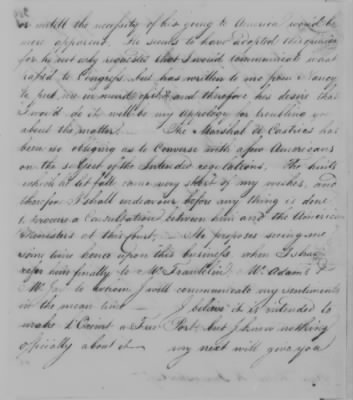 or untill the necessity of his going to America would be
more apparent. He seems to have adopted this opinion
for he not only requested that I would communicate what
past to Congress, but has written to me from Nancy
to put me in mind of it and therefore his desire that
I would do it will be my appology for troubling you
about the matter. — The Marshal de Castries has
been so obliging as to Converse with a few Americans
on the subject of the Intended regulations. The hints
which he let fall came very short of my wishes, and
therefore I shall endeavour before any thing is done
to procure a Consultation between him and the American
Ministers at this Court. — He proposes seeing me
some time hence upon this business when I shall
refer him finally to Mr Franklin Mr Adams &
Mr Jay to whom I will communicate my sentiments
in the mean time — I believe it is intended to
make L'Orient a Free Port but I know nothing
officially about it — my next will give you